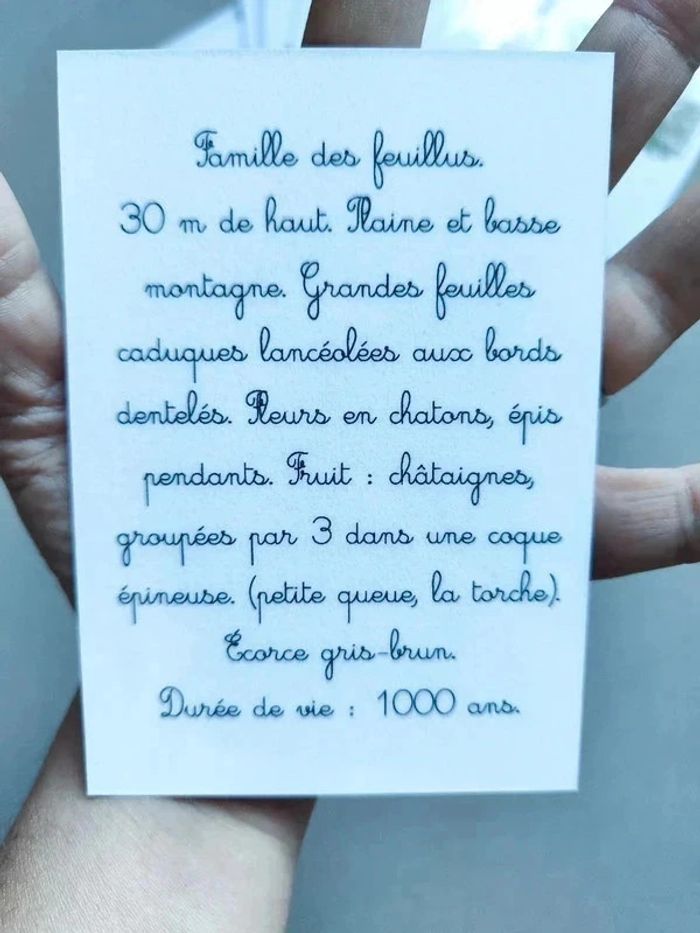 Famille des feuillus.
30 m de haut. Plaine et basse
montagne. Grandes feuilles
caduques lancéolées aux bords
dentelés. Fleurs en chatons, épis
pendants. Fruit : châtaignes,
groupées par 3 dans une coque
épineuse. (petite queue, la torche).
Écorce gris-brun.
Durée de vie : 1000 ans.